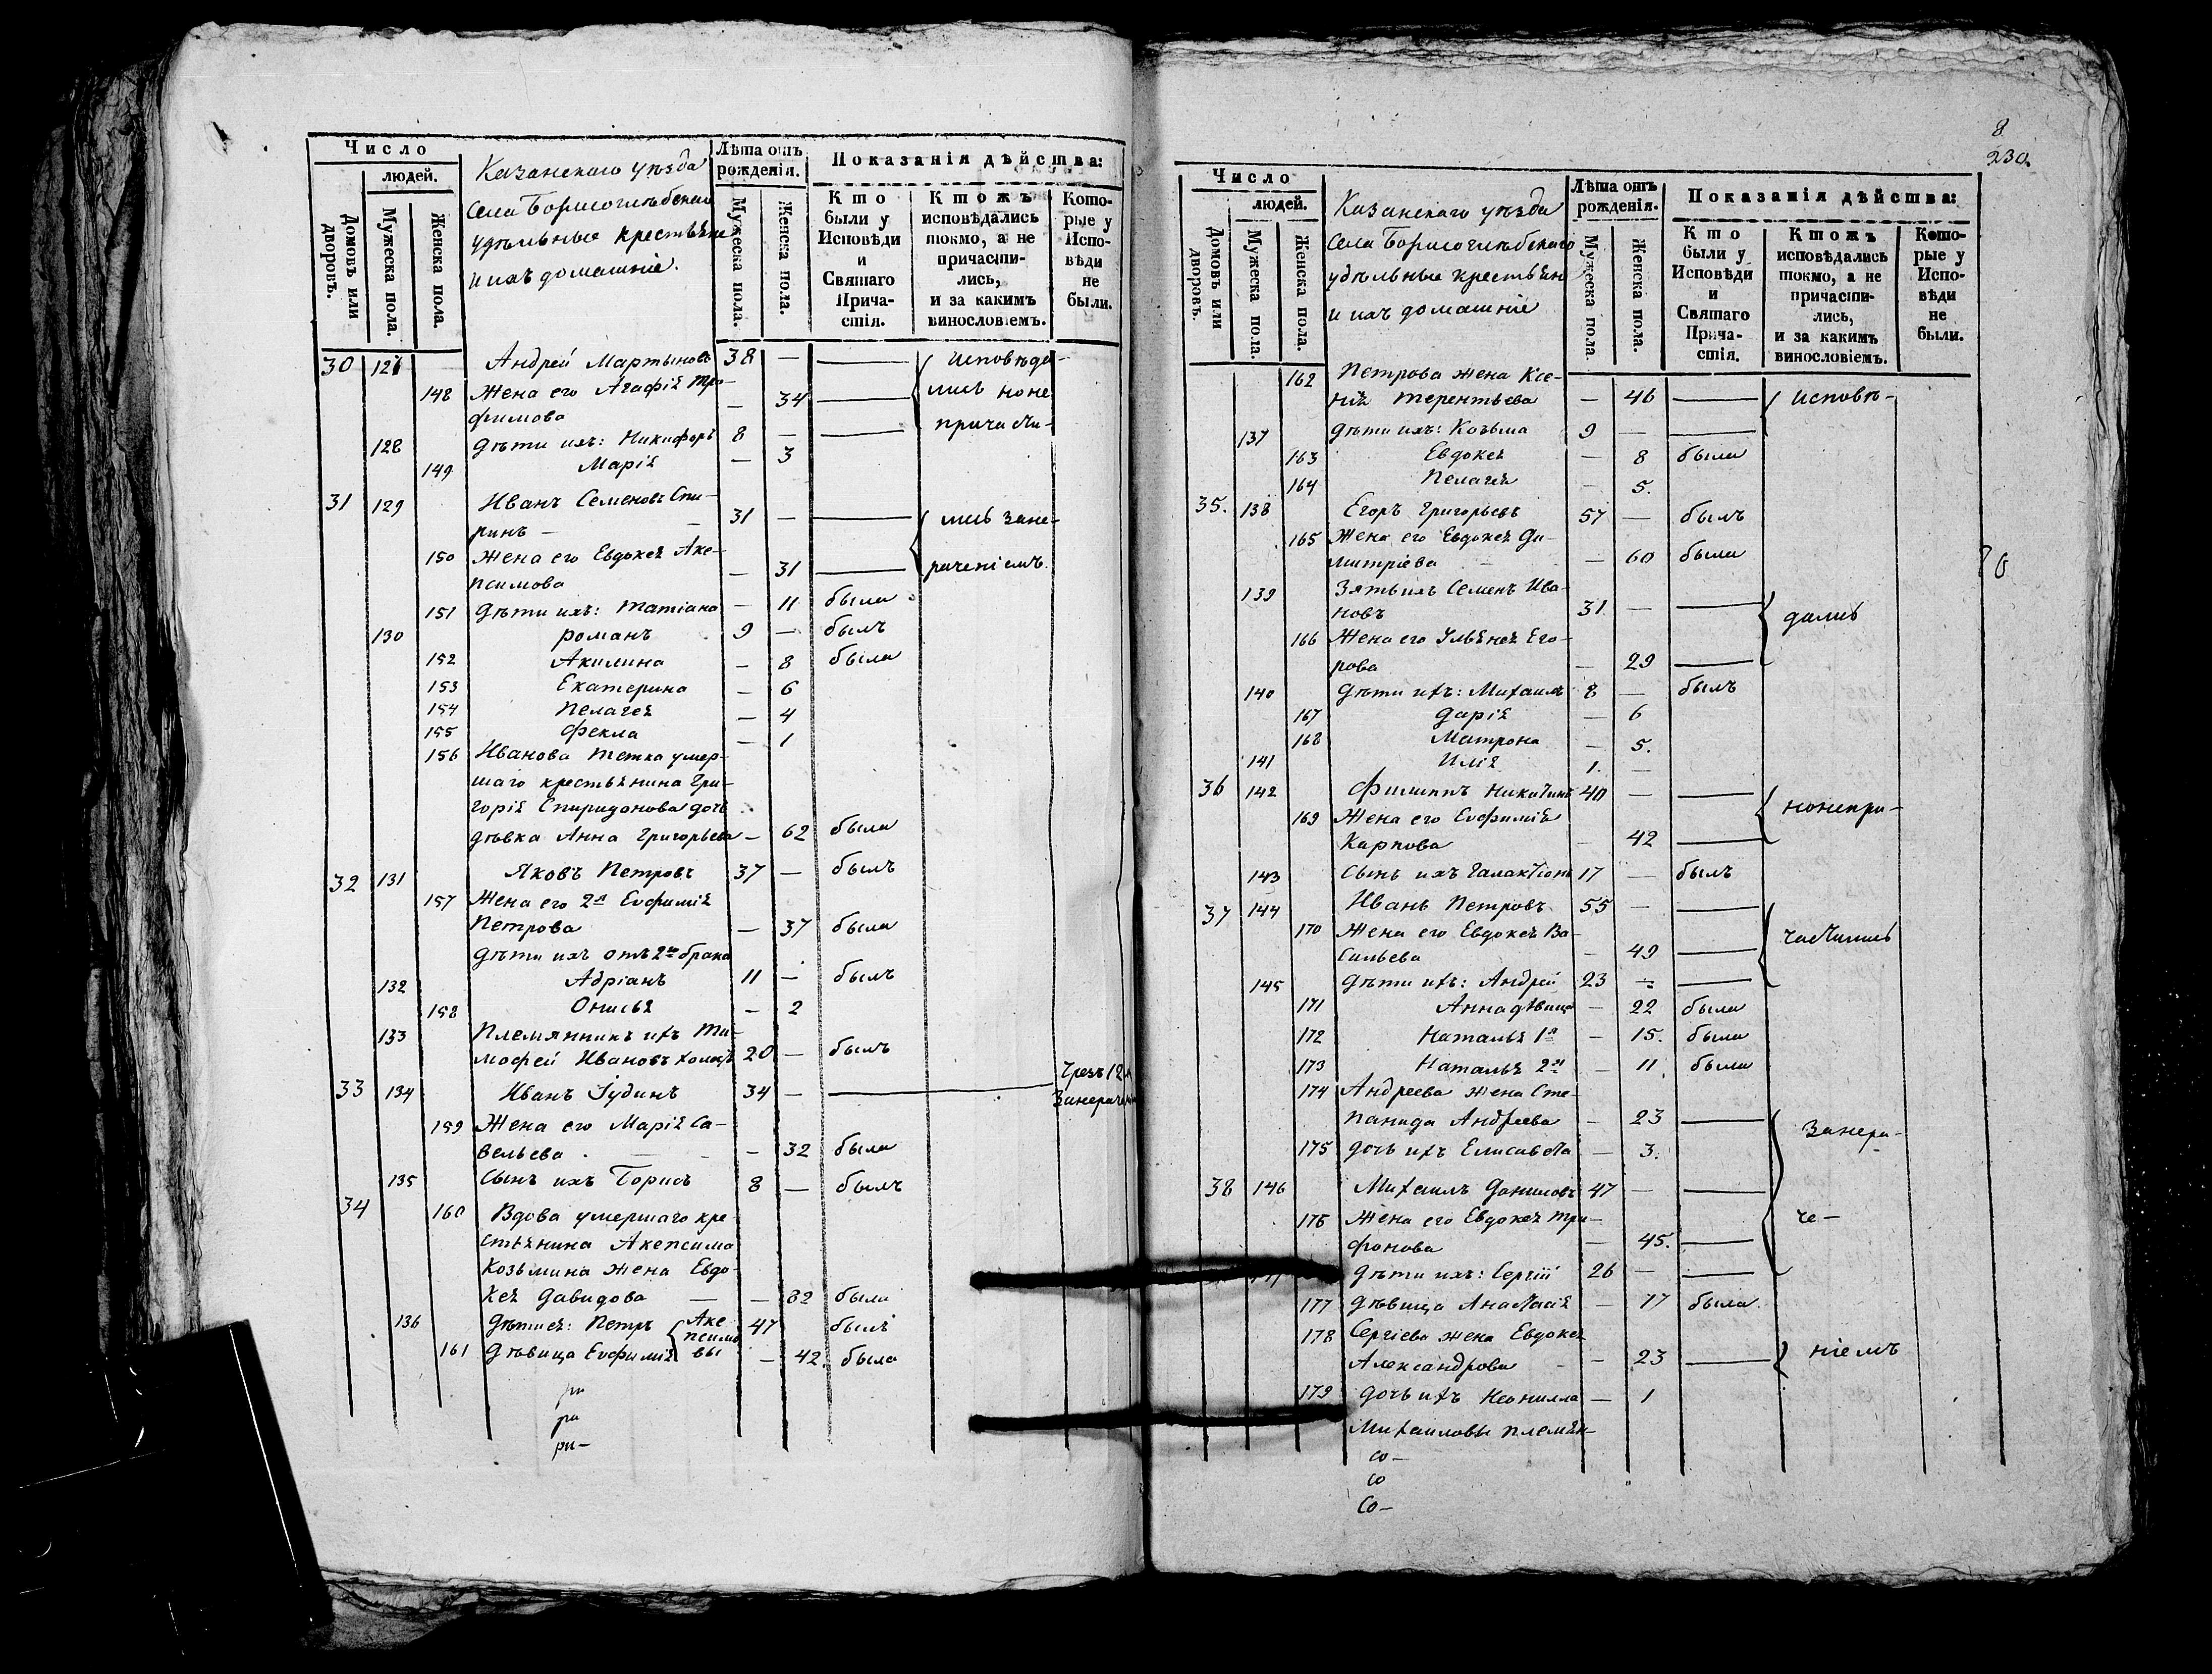 Число
людей.
Домовъ или дворовъ.
Мужеска пола.
Женска пола.
Казанскаго уѣзда
села Борисоглѣбскаго
удѣльные крестьяне
и ихъ домашніе.
Лѣта отъ рожденія.
Мужеска пола.
Женска пола.
Показанія дѣйства:
Кто были у Исповѣди и Святаго Причастія.
Ктожъ исповѣдались токмо, а не причастились, и за какимъ винословіемъ.
Которые у Исповѣди не были.
30 Андрей Мартыновъ 38 — — исповѣда-
148 Жена его Агафія Тро-
фимова — 34 — лись но не
128 Дѣти ихъ: Никифоръ 8 — — причасти-
149 Марія — 3
31 129 Иванъ Семеновъ Спи-
ринъ — 31 — — лись за не-
150 Жена его Евдокея Аке-
псимова — 31 — раченіемъ.
151 Дѣти ихъ: Татіана — 11 была
130 Романъ 9 — былъ
152 Акилина — 8 была
153 Екатерина — 6
154 Пелагея — 4
155 Фекла — 1
156 Иванова тетка умер-
шаго крестьянина Гри-
горія Спиридонова дочь
дѣвка Анна Григорьева — 62 была
32 131 Яковъ Петровъ 37 — былъ
157 Жена его 2я Евфимія
Петрова — 37 была
Дѣти ихъ отъ 2го брака
132 Адріанъ 11 — былъ
158 Онисья — 2
133 Племянникъ ихъ Ти-
мофей Ивановъ холостъ 20 — былъ
33 134 Иванъ Іудинъ 34 — — Чрезъ 12 л
за нерачен
159 Жена его Марія Са-
вельева — 32 была
135 Сынъ ихъ Борисъ 8 — былъ
34 160 Вдова умершаго кре-
стьянина Акепсима
Козьмина жена Евдо-
кея Давидова — — 82 была
136 Дѣти ея: Петръ { Аке
псимо
вы 47 былъ
161 Дѣвица Евфимія — 42. была
ри
ри
ри-
8
230.
Число
людей.
Домовъ или дворовъ.
Мужеска пола.
Женска пола.
Казанскаго уѣзда
села Борисоглѣбскаго
удѣльные крестьян
и ихъ домашніе
Лѣта отъ рожденія.
Мужеска пола.
Женска пола.
Показанія дѣйства:
Кто были у Исповѣди и Святаго Причастія.
Ктожъ исповѣдались токмо, а не причастились, и за какимъ винословіемъ.
Которые у Исповѣди не были.
162 Петрова жена Ксе-
нія Терентьева — 46 — исповѣ-
137 Дѣти ихъ: Козьма 9 — —
163 Евдокея — 8 была
164 Пелагея — 5.
35. 138 Егоръ Григорьевъ 57 — былъ
165 Жена его Евдокея Ди-
митріева — 60 была
139 Зять ихъ Семенъ Ива-
новъ 31. — — дались
166 Жена его Ульянея Его-
рова — 29 —
140 Дѣти ихъ: Михаилъ 8 — былъ
167 Дарія — 6
168 Матрона — 5.
141 Илія 1. —
36 142 Филиппъ Никитинъ 40 — — но не при-
169 Жена его Евфимія
Карпова — 42 —
143 Сынъ ихъ Галактіонъ 17 — былъ
37 144 Иванъ Петровъ 55 — —
170 Жена его Евдокея Ва-
сильева — 49 — частились
145 Дѣти ихъ: Андрей 23 — —
171 Анна дѣвица — 22 была
172 Наталья 1я — 15. была
173 Наталья 2я — 11. была
174 Андреева жена Сте-
панида Андреева — 23 — за нера-
175 дочь ихъ Елисавета — 3.
38 146 Михаилъ Даниловъ 47 — —
176 Жена его Евдокея Три-
фонова — 45. — че-
Дѣти ихъ: Сергій 26 — —
177 Дѣвица Анастасія — 17 была.
178 Сергіева жена Евдокея
Александрова — 23 — ніемъ
179 дочь ихъ Неонилла — 1
Михаиловы племян-
со-
со
со-